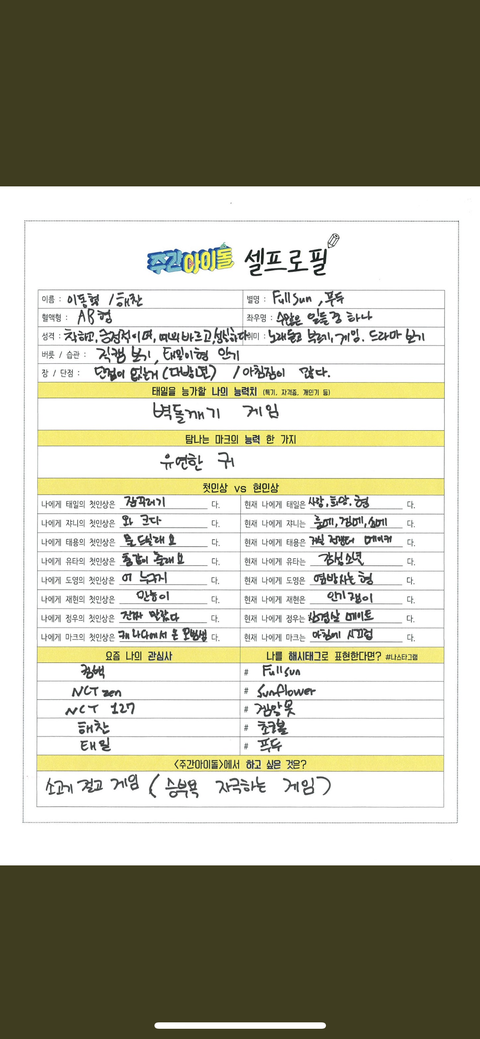 주간아이돌 셀프로필
이름 : 이동혁 / 해찬 별명 : Full Sun, 푸두
혈액형 : AB형 좌우명 : 수많은 일들 중 하나
성격 : 착하고, 긍정적이며, 예의바르고 성실하다 취미 : 노래듣고 부르기, 게임, 드라마 보기
버릇 / 습관 : 직캠 보기, 태일이형 안기
장 / 단점 : 단점이 없는거 (다방면) / 아침잠이 많다.
태일을 능가할 나의 능력치 (특기, 자격증, 개인기 등)
벽돌깨기 게임
탐나는 마크의 능력 한 가지
유연한 귀
첫인상 vs 현인상
나에게 태일의 첫인상은 잠꾸러기 다. 현재 나에게 태일은 사랑, 희망, 형 다.
나에게 쟈니의 첫인상은 와 크다 다. 현재 나에게 쟈니는 다.
나에게 태용의 첫인상은 뭘 드릴래요 다. 현재 나에게 태용은 메이커 다.
나에게 유타의 첫인상은 똥같이 출래요 다. 현재 나에게 유타는 감성소년 다.
나에게 도영의 첫인상은 어 누구지 다. 현재 나에게 도영은 옆방사는 형 다.
나에게 재현의 첫인상은 만능이 다. 현재 나에게 재현은 인기쟁이 다.
나에게 정우의 첫인상은 진짜 말랐다 다. 현재 나에게 정우는 삼겹살 메이트 다.
나에게 마크의 첫인상은 캐나다에서 온 모범생 다. 현재 나에게 마크는 아침에 시끄럼 다.
요즘 나의 관심사 나를 해시태그로 표현한다면? #나스타그램
컴백 # Fullsun
NCTzen # Sunflower
NCT 127 # 검암옷
해찬 # 초코볼
태일 # 푸두
<주간아이돌>에서 하고 싶은 것은?
소고기 걸고 게임 ( 승부욕 자극하는 게임 )